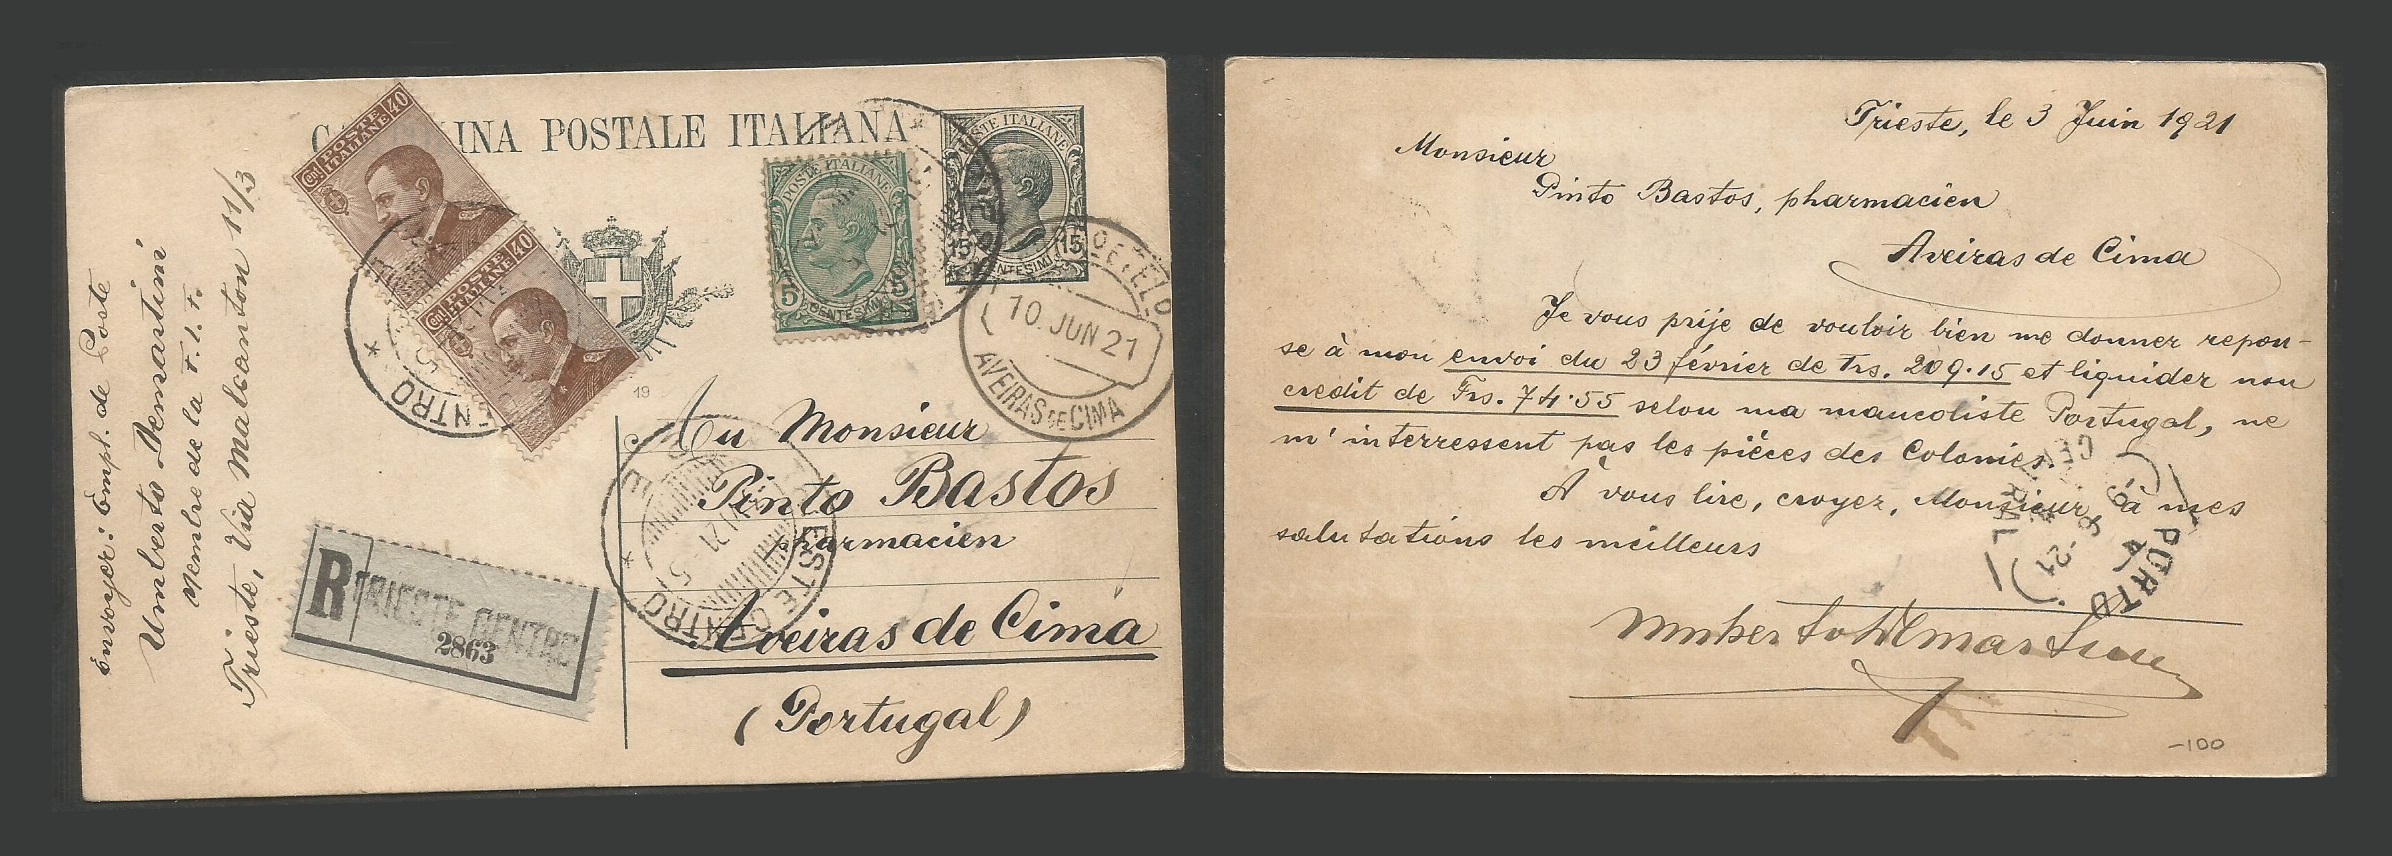 CARTOLINA POSTALE ITALIANA
POSTE ITALIANE
15 15
CENTESIMI
POSTE ITALIANE
5 5
CENTESIMI
Cent POSTE ITALIANE 40
Cent POSTE ITALIANE 40
CENTRO
10. JUN 21
AVEIRAS DE CIMA
19
Envoyer: Empl. de Poste
Umberto Demartini
Membre de la F. I. F.
Trieste, Via Malcanton 11/3
R TRIESTE CENTRO
2863
TRIESTE CENTRO
Au Monsieur
Pinto Bastos
pharmacien
Aveiras de Cima
(Portugal)
Trieste, le 3 Juin 1921
Monsieur
Pinto Bastos, pharmacien
Aveiras de Cima
Je vous prije de vouloir bien me donner repon-
se à mon envoi du 23 février de Frs. 209.15 et liquider mon
credit de Frs. 74.55 selon ma mancoliste Portugal, ne
m'interressent pas les pièces des Colonies.
À vous lire, croyez, Monsieur, à mes
salutations les meilleurs
Umberto Demartini
PORTO
CENTRAL
9 - 6 - 21
-100